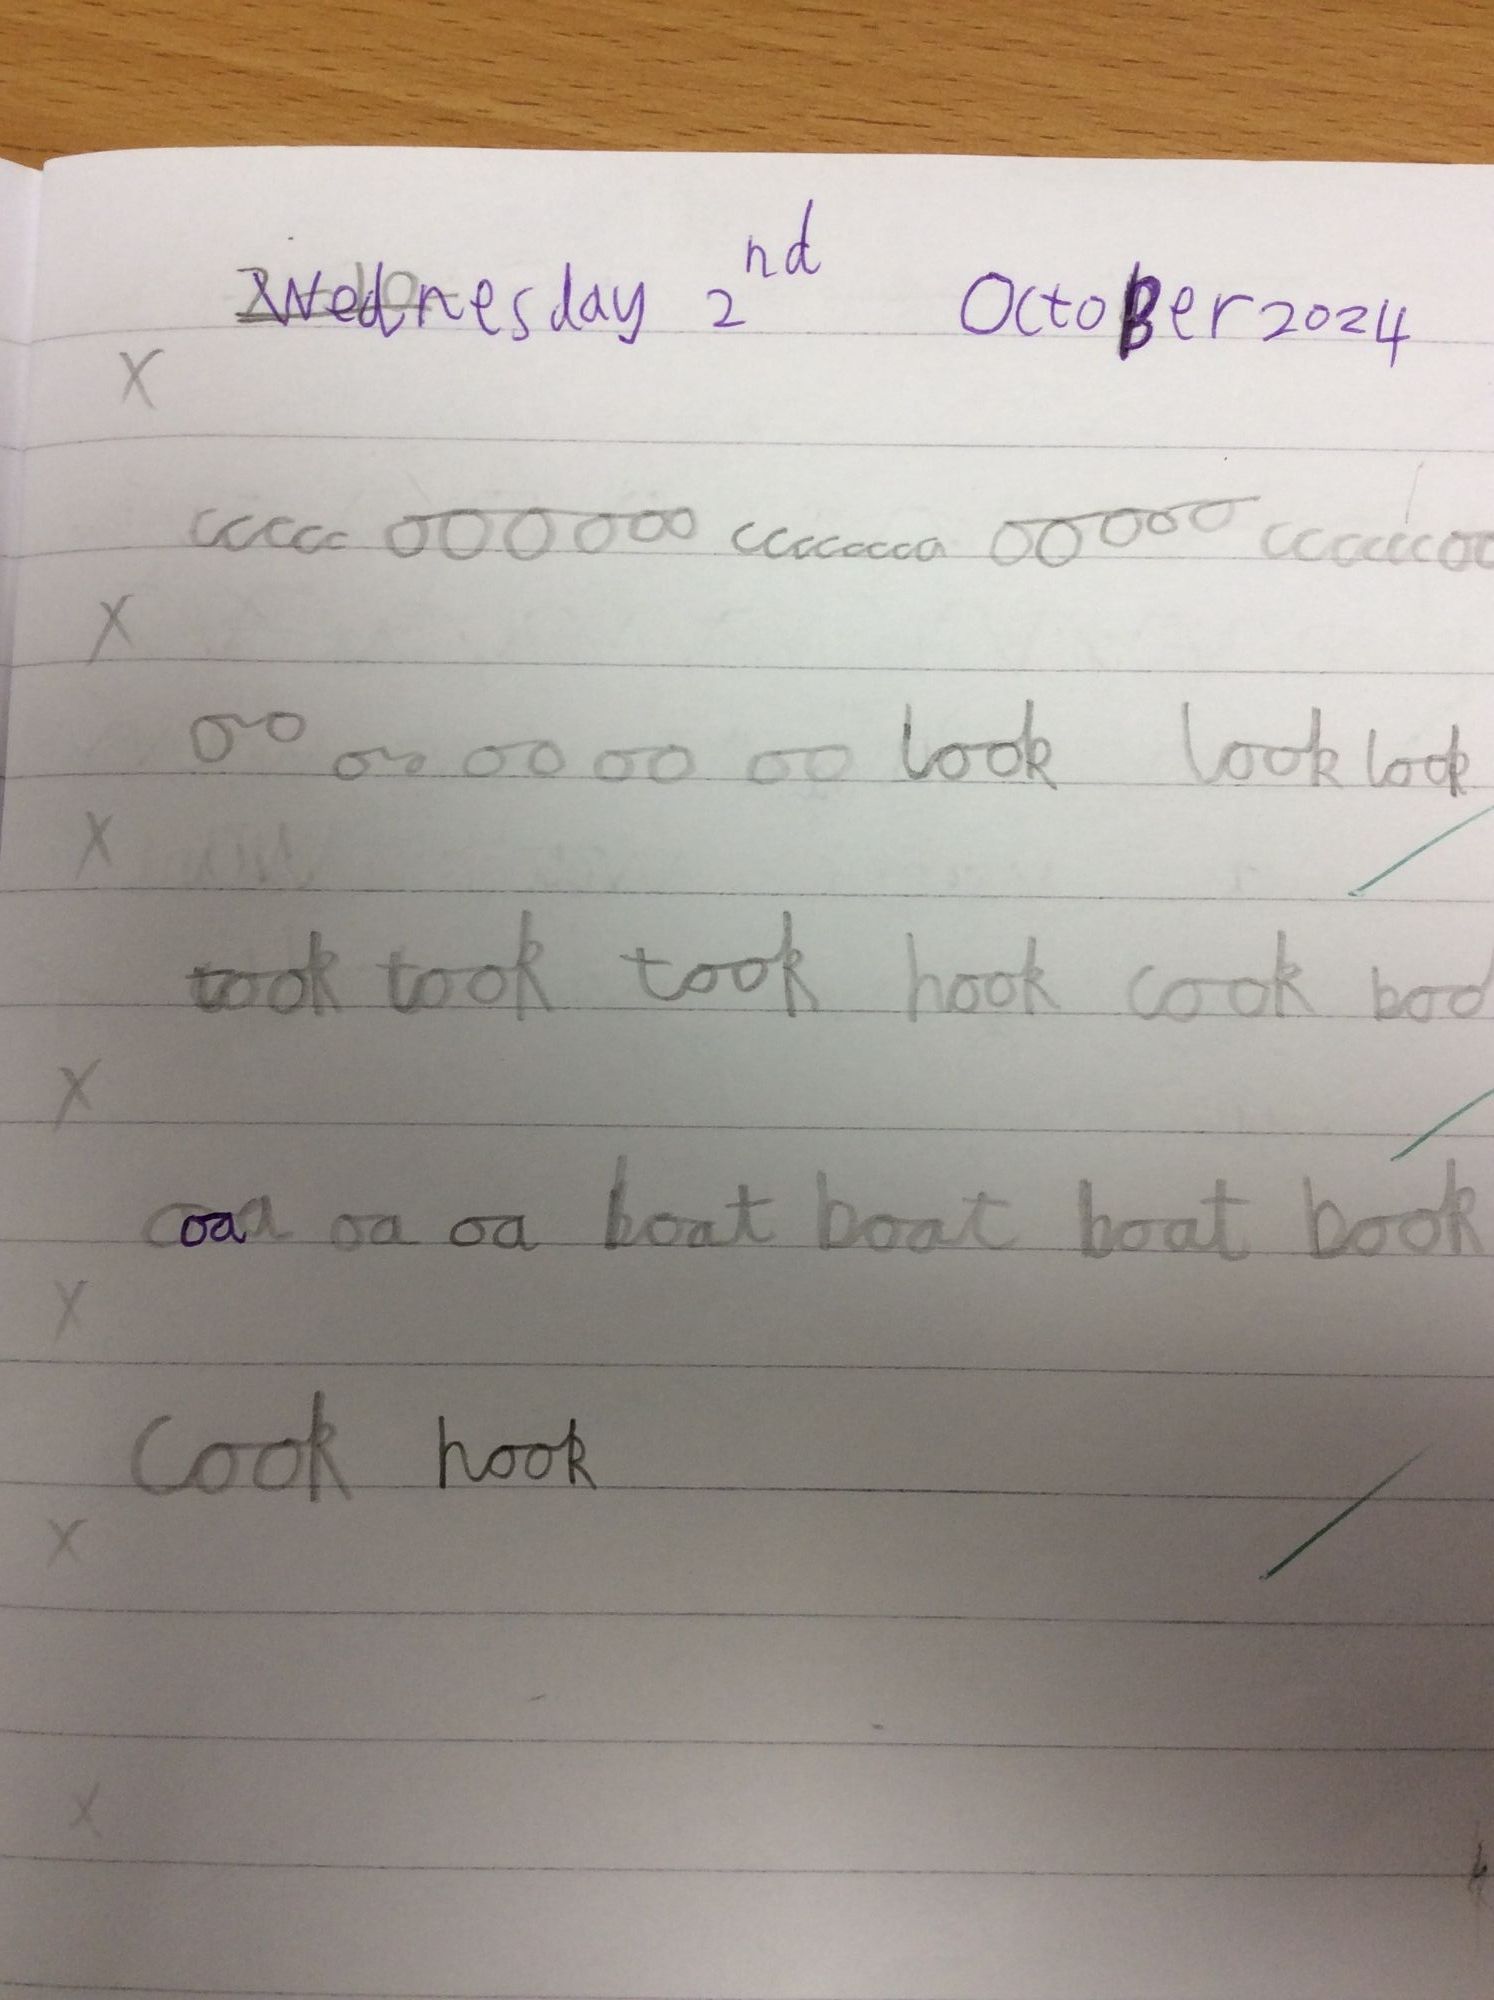 Wednesday 2nd October 2024
x
ccccc oooooo cccccccca ooooo ccccccccoo
x
oo oo oo oo oo look look look
x
took took took hook cook boo
x
oa oa oa boat boat boat book
x
Cook hook
x
x